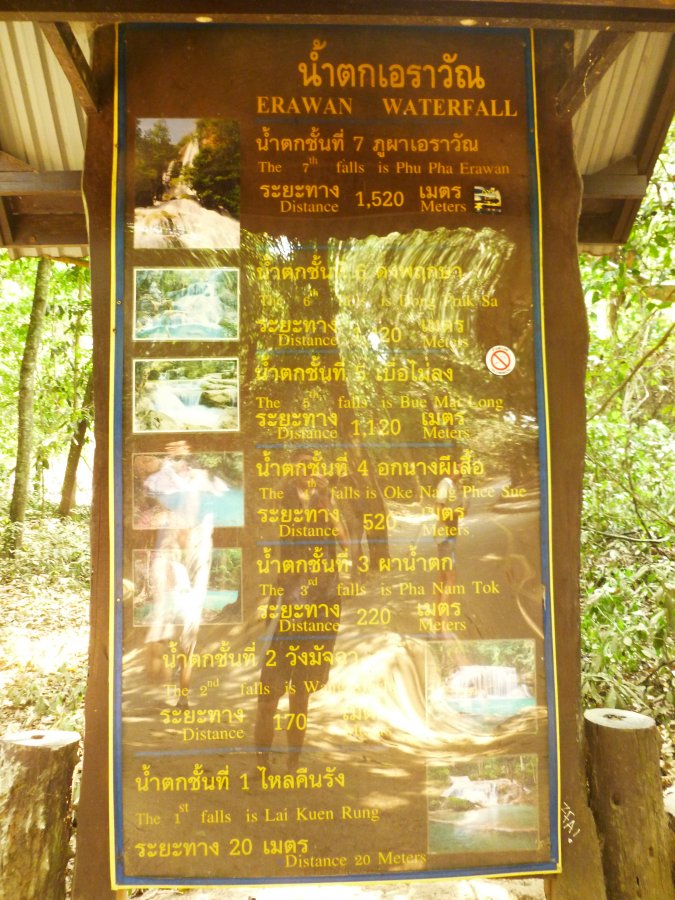 น้ำตกเอราวัณ
ERAWAN WATERFALL
น้ำตกชั้นที่ 7 ภูผาเอราวัณ
The 7th falls is Phu Pha Erawan
ระยะทาง 1,520 เมตร
Distance Meters
น้ำตกชั้นที่ 6 ดงพฤกษา
The 6th falls is Dong Pruk Sa
ระยะทาง เมตร
Distance Meters
น้ำตกชั้นที่ 5 เบื่อไม่ลง
The 5th falls is Bue Mai Long
ระยะทาง 1,120 เมตร
Distance Meters
น้ำตกชั้นที่ 4 อกนางผีเสื้อ
The 4th falls is Oke Nang Phee Sue
ระยะทาง 520 เมตร
Distance Meters
น้ำตกชั้นที่ 3 ผาน้ำตก
The 3rd falls is Pha Nam Tok
ระยะทาง 220 เมตร
Distance Meters
น้ำตกชั้นที่ 2 วังมัจฉา
The 2nd falls is
ระยะทาง 170 เมตร
Distance Meters
น้ำตกชั้นที่ 1 ไหลคืนรัง
The 1st falls is Lai Kuen Rung
ระยะทาง 20 เมตร
Distance 20 Meters